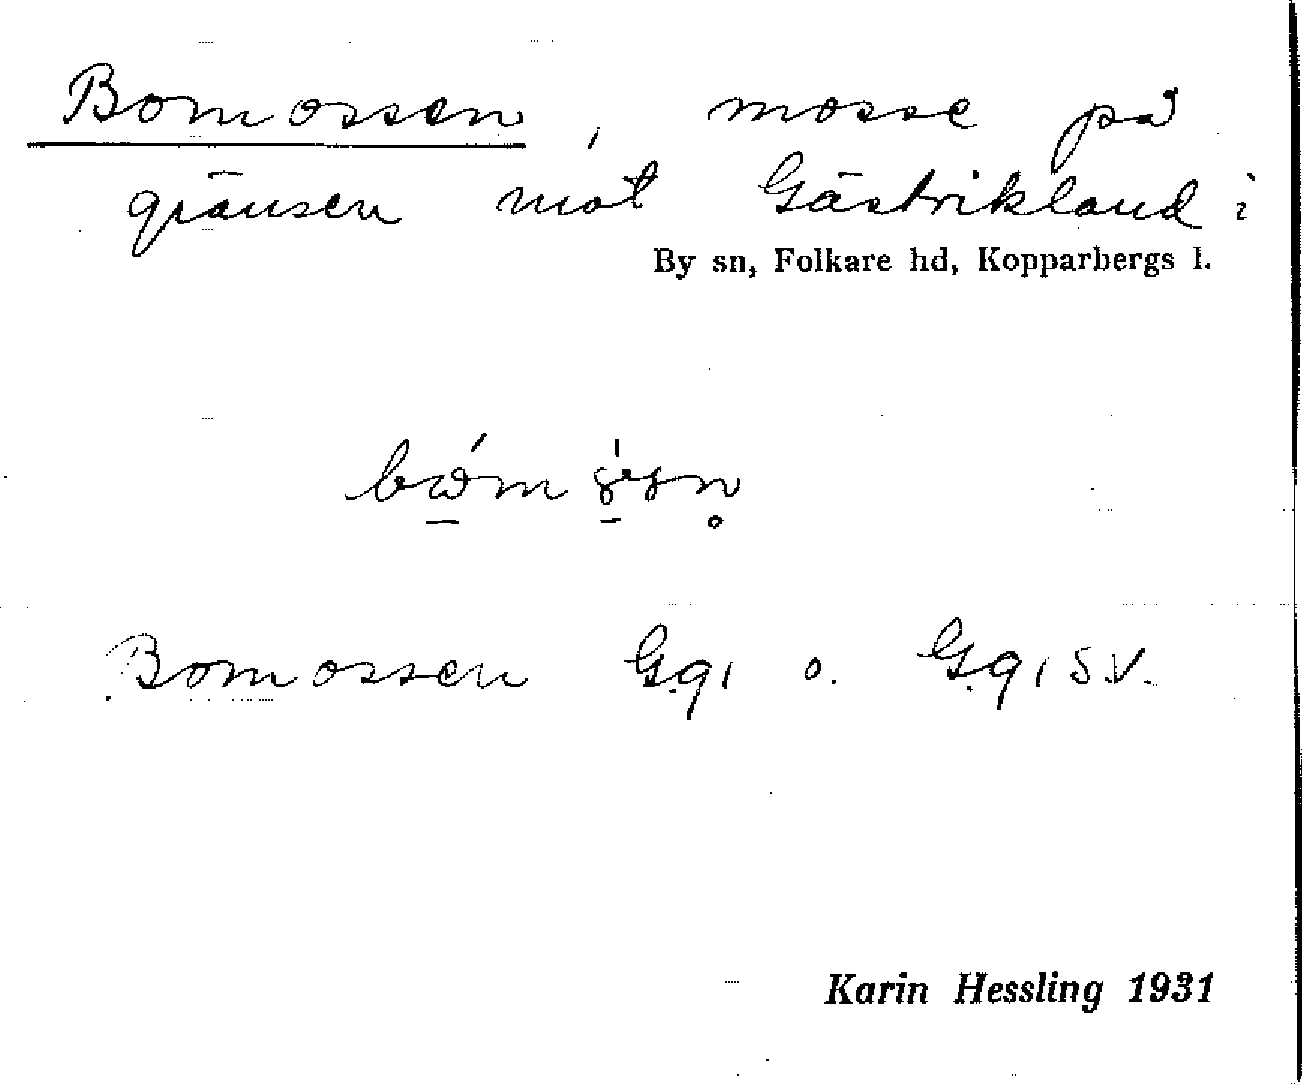 Bomossen, mosse på
gränsen mot Gästrikland i
By sn, Folkare hd, Kopparbergs l.
Bomossen G.q, o. G.q, S.V.
Karin Hessling 1931